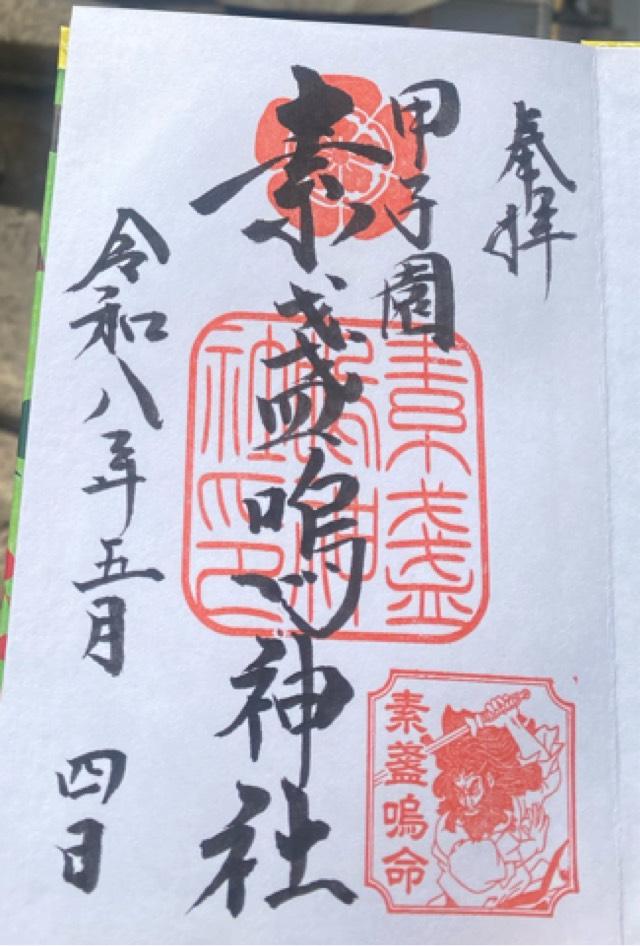 奉拝
甲子園
素盞嗚神社
令和八年五月四日
素盞嗚神社印
素盞嗚命